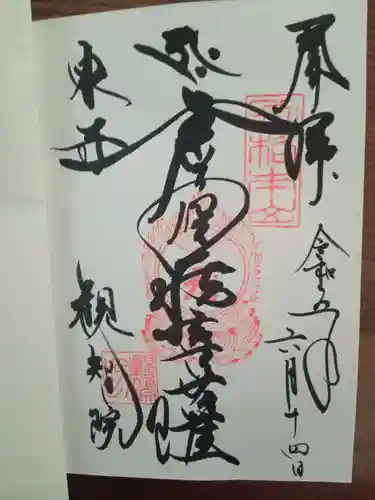 奉拝
令和五年
六月十四日
五大虚空蔵菩薩
東寺
観智院